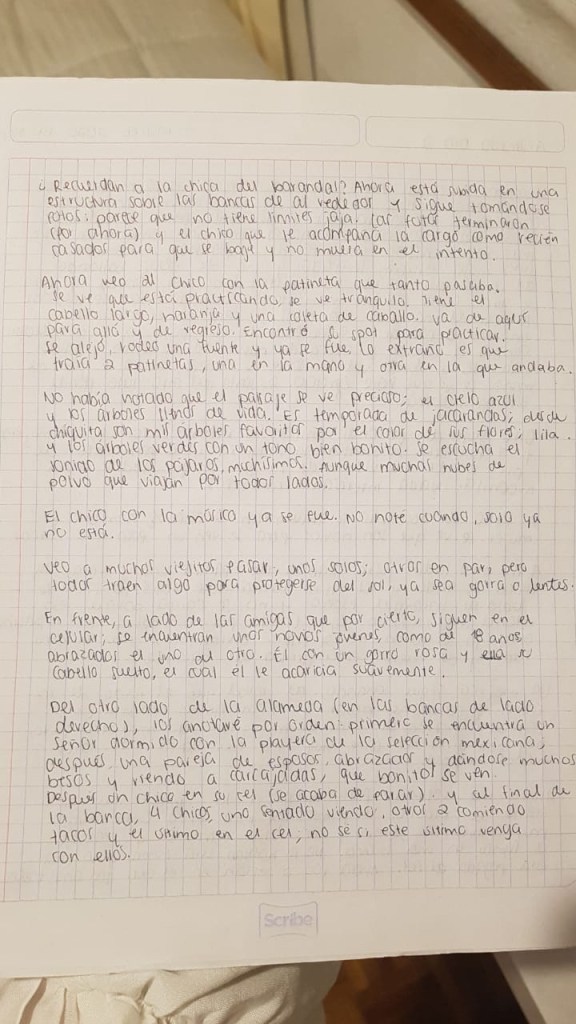 ¿Recuerdan a la chica del barandal? Ahora está subida en una
estructura sobre las bancas de al rededor y sigue tomandose
fotos; parece que no tiene limites jaja. Las fotos terminaron
(por ahora) y el chico que le acompaña la cargó como recién
casados para que se baje y no muera en el intento.
Ahora veo al chico con la patineta que tanto pasaba.
Se ve que está practicando, se ve tranquilo. Tiene el
cabello largo, naranja y una coleta de caballo. Va de aquí
para allá y de regreso. Encontró su spot para practicar.
Se alejó, rodeo una fuente y ya se fue. Lo extraño es que
traia 2 patinetas, una en la mano y otra en la que andaba.
No había notado que el paisaje se ve precioso; el cielo azul
y los árboles llenos de vida. Es temporada de jacarandas; desde
chiquita son mis árboles favoritos por el color de sus flores; lila.
y los árboles verdes con un tono bien bonito. Se escucha el
sonido de los pájaros, muchísimos. Aunque muchas nubes de
polvo que viajan por todos lados.
El chico con la música ya se fue. No noté cuándo, solo ya
no está.
Veo a muchos viejitos pasar, unos solos; otros en par, pero
todos traen algo para protegerse del sol, ya sea gorra o lentes.
En frente, a lado de las amigas que por cierto, siguen en el
celular; se encuentran unos novios jóvenes, como de 18 años
abrazados el uno del otro. Él con un gorro rosa y ella
cabello suelto, el cual él le acaricia suavemente.
Del otro lado de la alameda (en las bancas de lado
derecho), los anotaré por orden: primero se encuentra un
señor dormido con la playera de la selección mexicana;
después, una pareja de esposos, abrazados y dándose muchos
besos y riendo a carcajadas, que bonito se ven.
Despues un chico en su cel (se acaba de parar). y al final de
la banca, 4 chicos, uno sentado viendo, otros 2 comiendo
tacos y el último en el cel, no sé si este último venga
con ellos.
Scribe